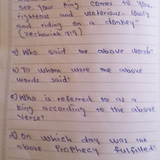 see your King comes to you,
righteous and victorious, lowly
and riding on a donkey"
(Zechariah 9:9)
a) Who said the above words?
b) To whom were the above
words said?
c) Who is referred to as a
king according to the above
verse?
d) On which day was the
above Prophecy fulfilled?